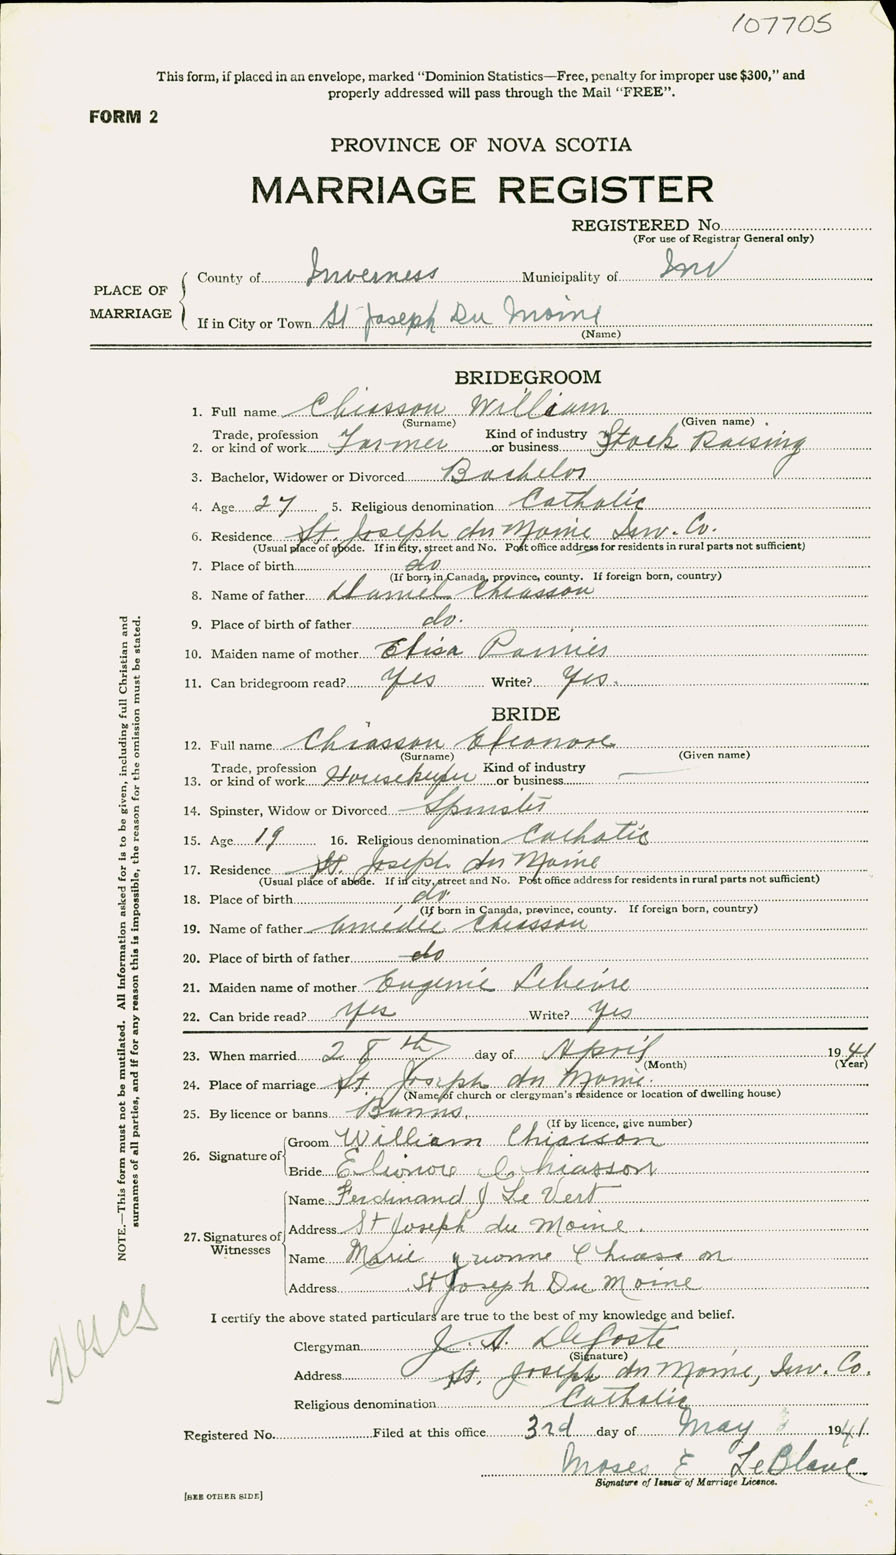 107705
This form, if placed in an envelope, marked "Dominion Statistics—Free, penalty for improper use $300," and
properly addressed will pass through the Mail "FREE".
FORM 2
PROVINCE OF NOVA SCOTIA
MARRIAGE REGISTER
REGISTERED No.
(For use of Registrar General only)
PLACE OF MARRIAGE
County of Inverness Municipality of Inv
If in City or Town St Joseph Du Moine
(Name)
BRIDEGROOM
1. Full name Chiasson William
(Surname) (Given name)
2. Trade, profession or kind of work Farmer Kind of industry or business Stock Raising
3. Bachelor, Widower or Divorced Bachelor
4. Age 27 5. Religious denomination Catholic
6. Residence St. Joseph du Moine Inv. Co.
(Usual place of abode. If in city, street and No. Post office address for residents in rural parts not sufficient)
7. Place of birth do
(If born in Canada, province, county. If foreign born, country)
8. Name of father Daniel Chiasson
9. Place of birth of father do.
10. Maiden name of mother Elisa
11. Can bridegroom read? Yes Write? Yes.
BRIDE
12. Full name Chiasson Eleonore
(Surname) (Given name)
13. Trade, profession or kind of work Housekeeper Kind of industry or business —
14. Spinster, Widow or Divorced Spinster
15. Age 19 16. Religious denomination Catholic
17. Residence St. Joseph du Moine
(Usual place of abode. If in city, street and No. Post office address for residents in rural parts not sufficient)
18. Place of birth do
(If born in Canada, province, county. If foreign born, country)
19. Name of father Amédée Chiasson
20. Place of birth of father do
21. Maiden name of mother Eugenie
22. Can bride read? Yes Write? Yes
23. When married 28th day of April 1941
(Month) (Year)
24. Place of marriage St. Joseph du Moine.
(Name of church or clergyman's residence or location of dwelling house)
25. By licence or banns Banns.
(If by licence, give number)
26. Signature of
Groom William Chiasson
Bride Elionore Chiasson
27. Signatures of Witnesses
Name Ferdinand J Le Vert
Address St Joseph du Moine.
Name Marie Yvonne Chiasson
Address St Joseph Du Moine
I certify the above stated particulars are true to the best of my knowledge and belief.
Clergyman J. A. DeCoste
(Signature)
Address St. Joseph du Moine, Inv. Co.
Religious denomination Catholic
Registered No. Filed at this office 3rd day of May 1941.
Moses E LeBlanc
Signature of Issuer of Marriage Licence.
[SEE OTHER SIDE]
NOTE.—This form must not be mutilated. All information asked for is to be given, including full Christian and
surnames of all parties, and if for any reason this is impossible, the reason for the omission must be stated.